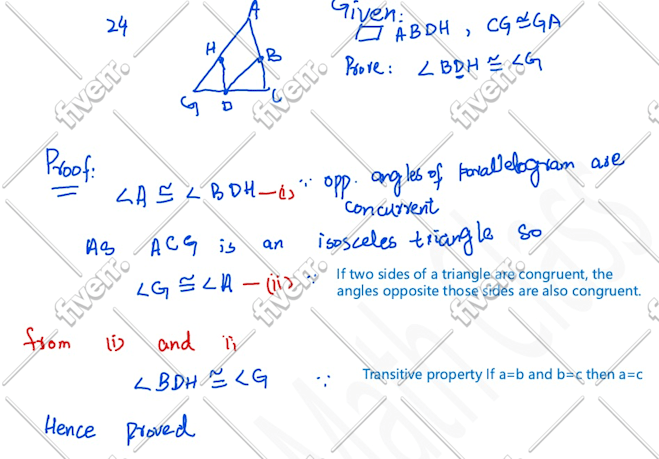 24
A
H
B
G
D
C
Given:
▱ ABDH , CG≅GA
Prove: ∠BDH ≅ ∠G
Proof:
∠A ≅ ∠BDH —(i) ∵ opp. angles of parallelogram are
concurrent
As ACG is an isosceles triangle so
∠G ≅ ∠A — (ii) ∵ If two sides of a triangle are congruent, the
angles opposite those sides are also congruent.
from (i) and ii
∠BDH ≅ ∠G ∵ Transitive property If a=b and b=c then a=c
Hence proved
fiverr.
fiverr.
fiverr.
fiverr.
fiverr.
fiverr.
fiverr.
fiverr.
fiverr.
Math Class